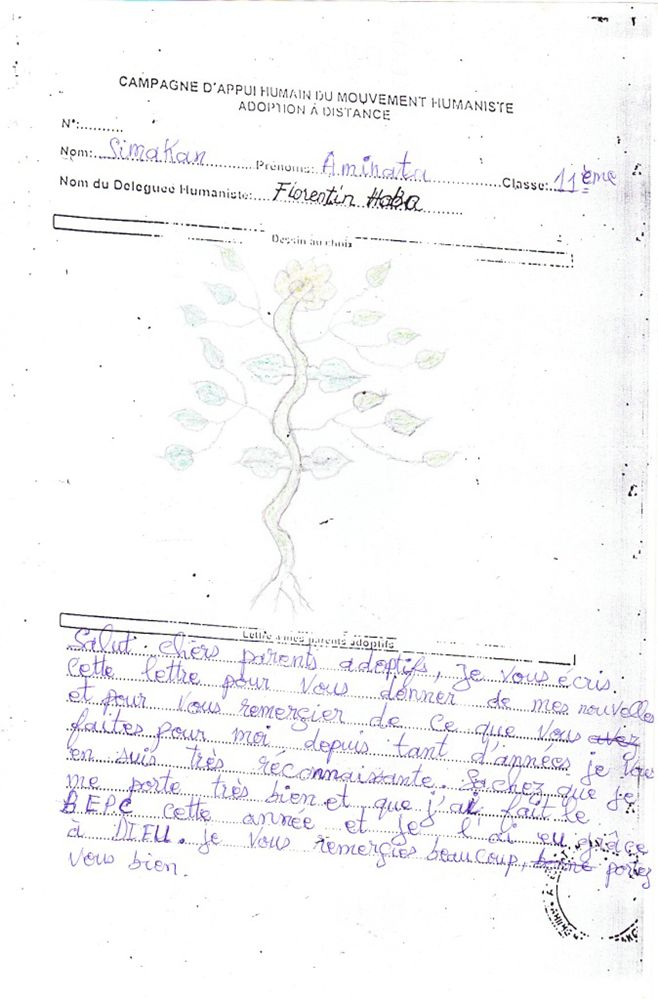 CAMPAGNE D'APPUI HUMAIN DU MOUVEMENT HUMANISTE
ADOPTION A DISTANCE
N°:..........
Nom: Simakan Prénoms: Aminata Classe: 11ème
Nom du Deleguee Humaniste: Florentin Haba
Dessin au choix
Lettre a mes parents adoptifs
Salut. chers parents adoptifs, je vous écris.
cette lettre pour vous donner de mes nouvelles
et pour vous remercier de ce que vous avez
faites pour moi depuis tant d'années je vous
en suis très réconnaissante. Sachez que je
me porte très bien et que j'ai fait le
BEPC cette année et je l'ai eu grâce
à DIEU. je vous remercies beaucoup, portez
vous bien.